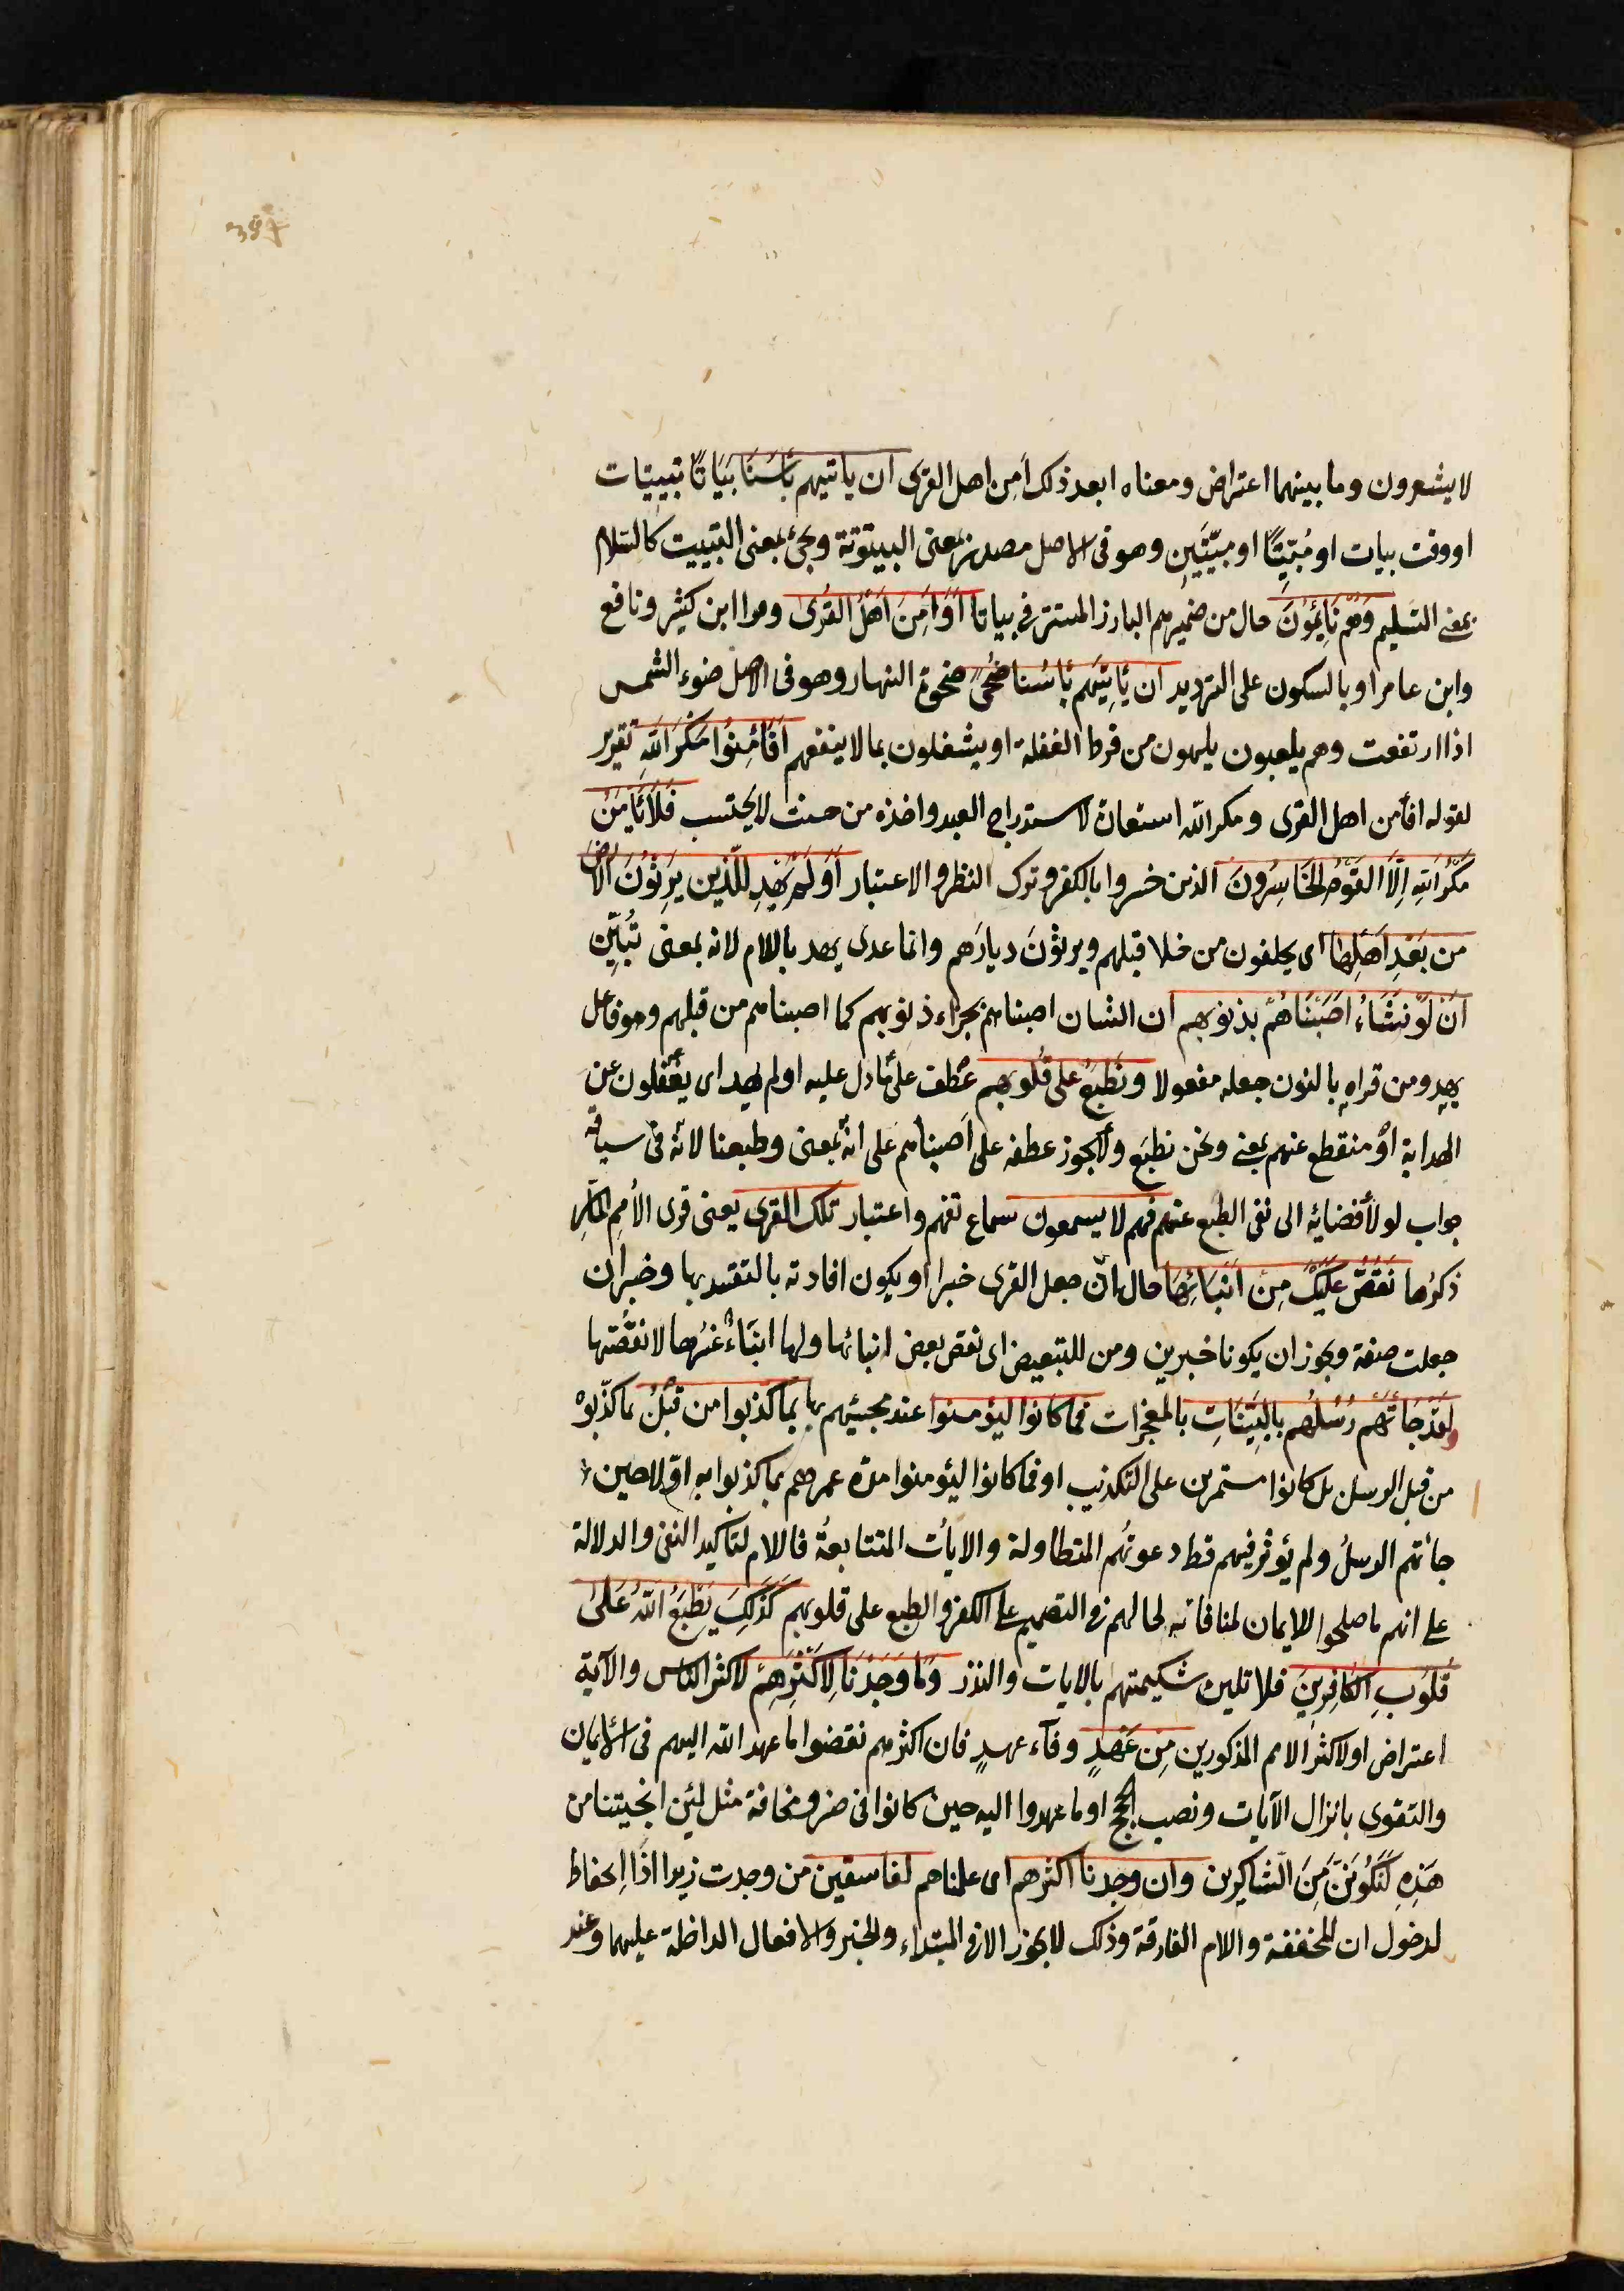 397
لا يشعرون وما بينهما اعتراض ومعناه ابعد ذلك امن اهل القرى ان ياتيهم بَأسُنَا بَيَاتًا تبييتات
او وقت بيات او مُبَيِّتًا او مبيّتَين وهو في الاصل مصدر بمعنى البيتوتة ويجئ بمعنى التبييت كالسّلام
بمعنى التسليم وَهُمْ نَائِمُوْنَ حال من ضميرهم البارز المستتر في بياتا اَوَاَمِنَ اَهْلُ القُرَىٰ وقرا ابن كثير ونافع
وابن عامر او بالسكون على الترديد ان يَأتِيَهُم بَأسُنا ضُحًى ضحوة النهار وهو فى الاصل ضوء الشمس
اذا ارتفعت وهم يلعبون يلهون من فرط الغفلة او يشغلون بما لا ينفعهم اَفَاَمِنُوْا مَكْرَ اللّٰهِ تقرير
لقوله افأمن اهل القرى ومكر الله استعارة لاستدراج العبد واخذه من حيث لا يحتسب فَلَا يَأمَنُ
مَكْرَ اللّٰهِ اِلَّا القَوْمُ الخَاسِرُونَ الذين خسروا بالكفر وترك النظر والاعتبار اَوَلَمْ يَهْدِ لِلَّذِين يَرِثُوْنَ الْاَرْضَ
من بَعْدِ اَهْلِهَا اى يخلفون من خلا قبلهم ويرثوْنَ ديارَهم وانما عدى يهد باللام لانه بمعنى تُبَيِّن
اَنْ لَوْ نَشَاءُ اَصَبْنَاهُمْ بذنوبهم ان الشان اصبناهم بجزاء ذنوبهم كما اصبنا من قبلهم وهو فاعل
يهدِ ومن قراه بالنون جعله مفعولا ونَطْبَعُ على قُلُوبهم عَطف على مَا دل عليه اولم يهد اى يغفلون عن
الهداية اوْ منقطع عنهم بمعنى ونحن نطبَع ولا يجوز عطفه على اَصبناهم على انه بمعنى وطبعنا لانه فى سياقة
جواب لو لأفضائه الى نفى الطبع عنهم فهم لا يسمعون سماع تفهم واعتبار تلك القرى يعنى قرى الأمم المَارِّ
ذكرُها نَقُصُّ عَلَيْكَ مِنْ اَنْبَائِهَا حال ان جعل القرى خبرا ويكون افادته بالتقييد بها وخبر ان
جعلت صفة ويجوز ان يكونا خبرين ومن للتبعيض اى نقص بعض انبائها ولها انبَاءٌ غيرُها لا نقُصّها
ولَقَدْ جَاءَتْهُمْ رُسُلُهُم بِالبَيِّنَاتِ بالمعجزات فما كَانوُا ليؤمنوا عند مجيئهم بها بِمَا كَذَّبوا من قَبْلُ بما كذّبوْه
من قبل الرسل بل كانوا مستمرين على التكذيب او فما كانوا ليؤمنوا مدّة عمرهم بما كذبوا به اوّلا حين
جاءَتهم الرسلُ ولم يؤثر فيهم قط دعوتُهم المتطاولة والآيات المتتابعةُ فاللام لتاكيد النفى والدلالة
على انهم ما صلحوا للايمان لمنافاته لحالهم فى التصميم على الكفر والطبع على قلوبهم كَذٰلِكَ يَطْبَعُ اللّٰهُ عَلىٰ
قُلُوبِ الكَافِرِينَ فلا تلين شكيمتهم بالآيات والنذر وَمَا وَجَدْنَا لِاَكْثَرِهِمْ لاكثر الناس والآية
اعتراض او لاكثر الامم المذكورين مِن عَهْدٍ وفآء عهدٍ فان اكثرهم نقضوا ما عهد الله اليهم فى الايمان
والتقوى بانزال الآيات ونصب الحجج او ما عهدوا اليه حين كانوا فى ضر ومخافة مثل لئِن انجيتنا من
هَذِهِ لَنَكُوْنَنَّ مِنَ الشاكِرين وان وجدنا اكثرهم اى علمناهم لفاسقين من وجدت زيدا اذا الحفاظ
لدخول ان المخففة واللام الفارقة وذلك لا يجوز الا فى المبتداء والخبر والافعال الداخلة عليهما وعند